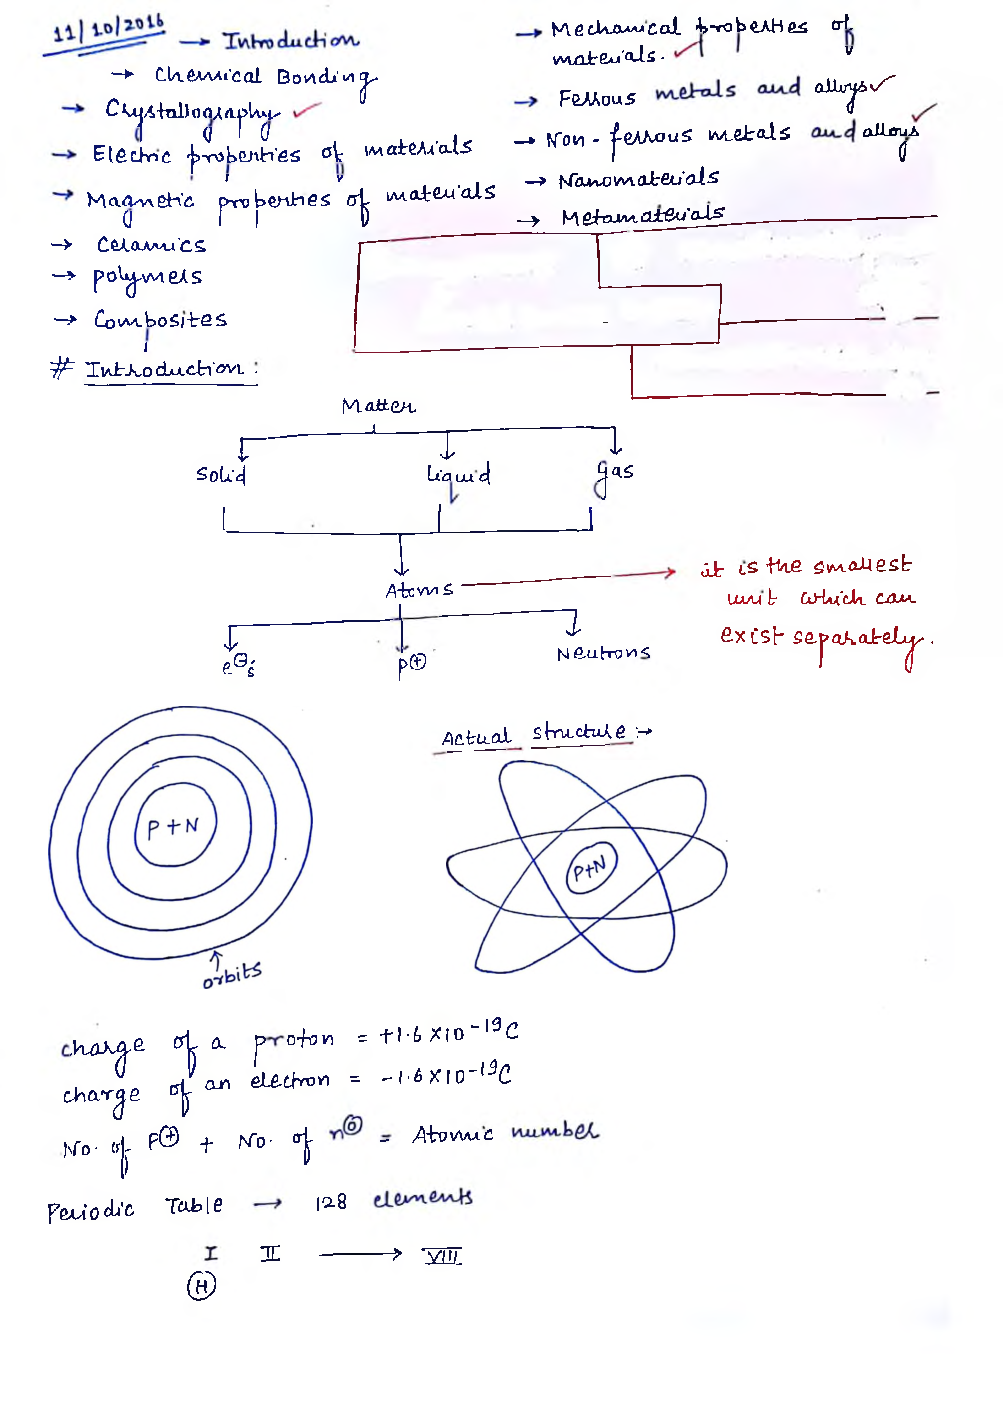 11/10/2016
→ Introduction
→ Chemical Bonding
→ Crystallography ✓
→ Electric properties of materials
→ Magnetic properties of materials
→ Ceramics
→ polymers
→ Composites
→ Mechanical properties of
materials. ✓
→ Ferrous metals and alloys ✓
→ Non-ferrous metals and alloys ✓
→ Nanomaterials
→ Metamaterials
# Introduction :
Matter
Solid Liquid gas
Atoms → it is the smallest
unit which can
exist separately.
e⊖s P⊕ Neutrons
P+N
orbits
Actual structure :→
P+N
charge of a proton = +1.6 X10⁻¹⁹C
charge of an electron = -1.6X10⁻¹⁹C
No. of P⊕ + No. of n⓪ = Atomic number
Periodic Table → 128 elements
I II → VIII
H